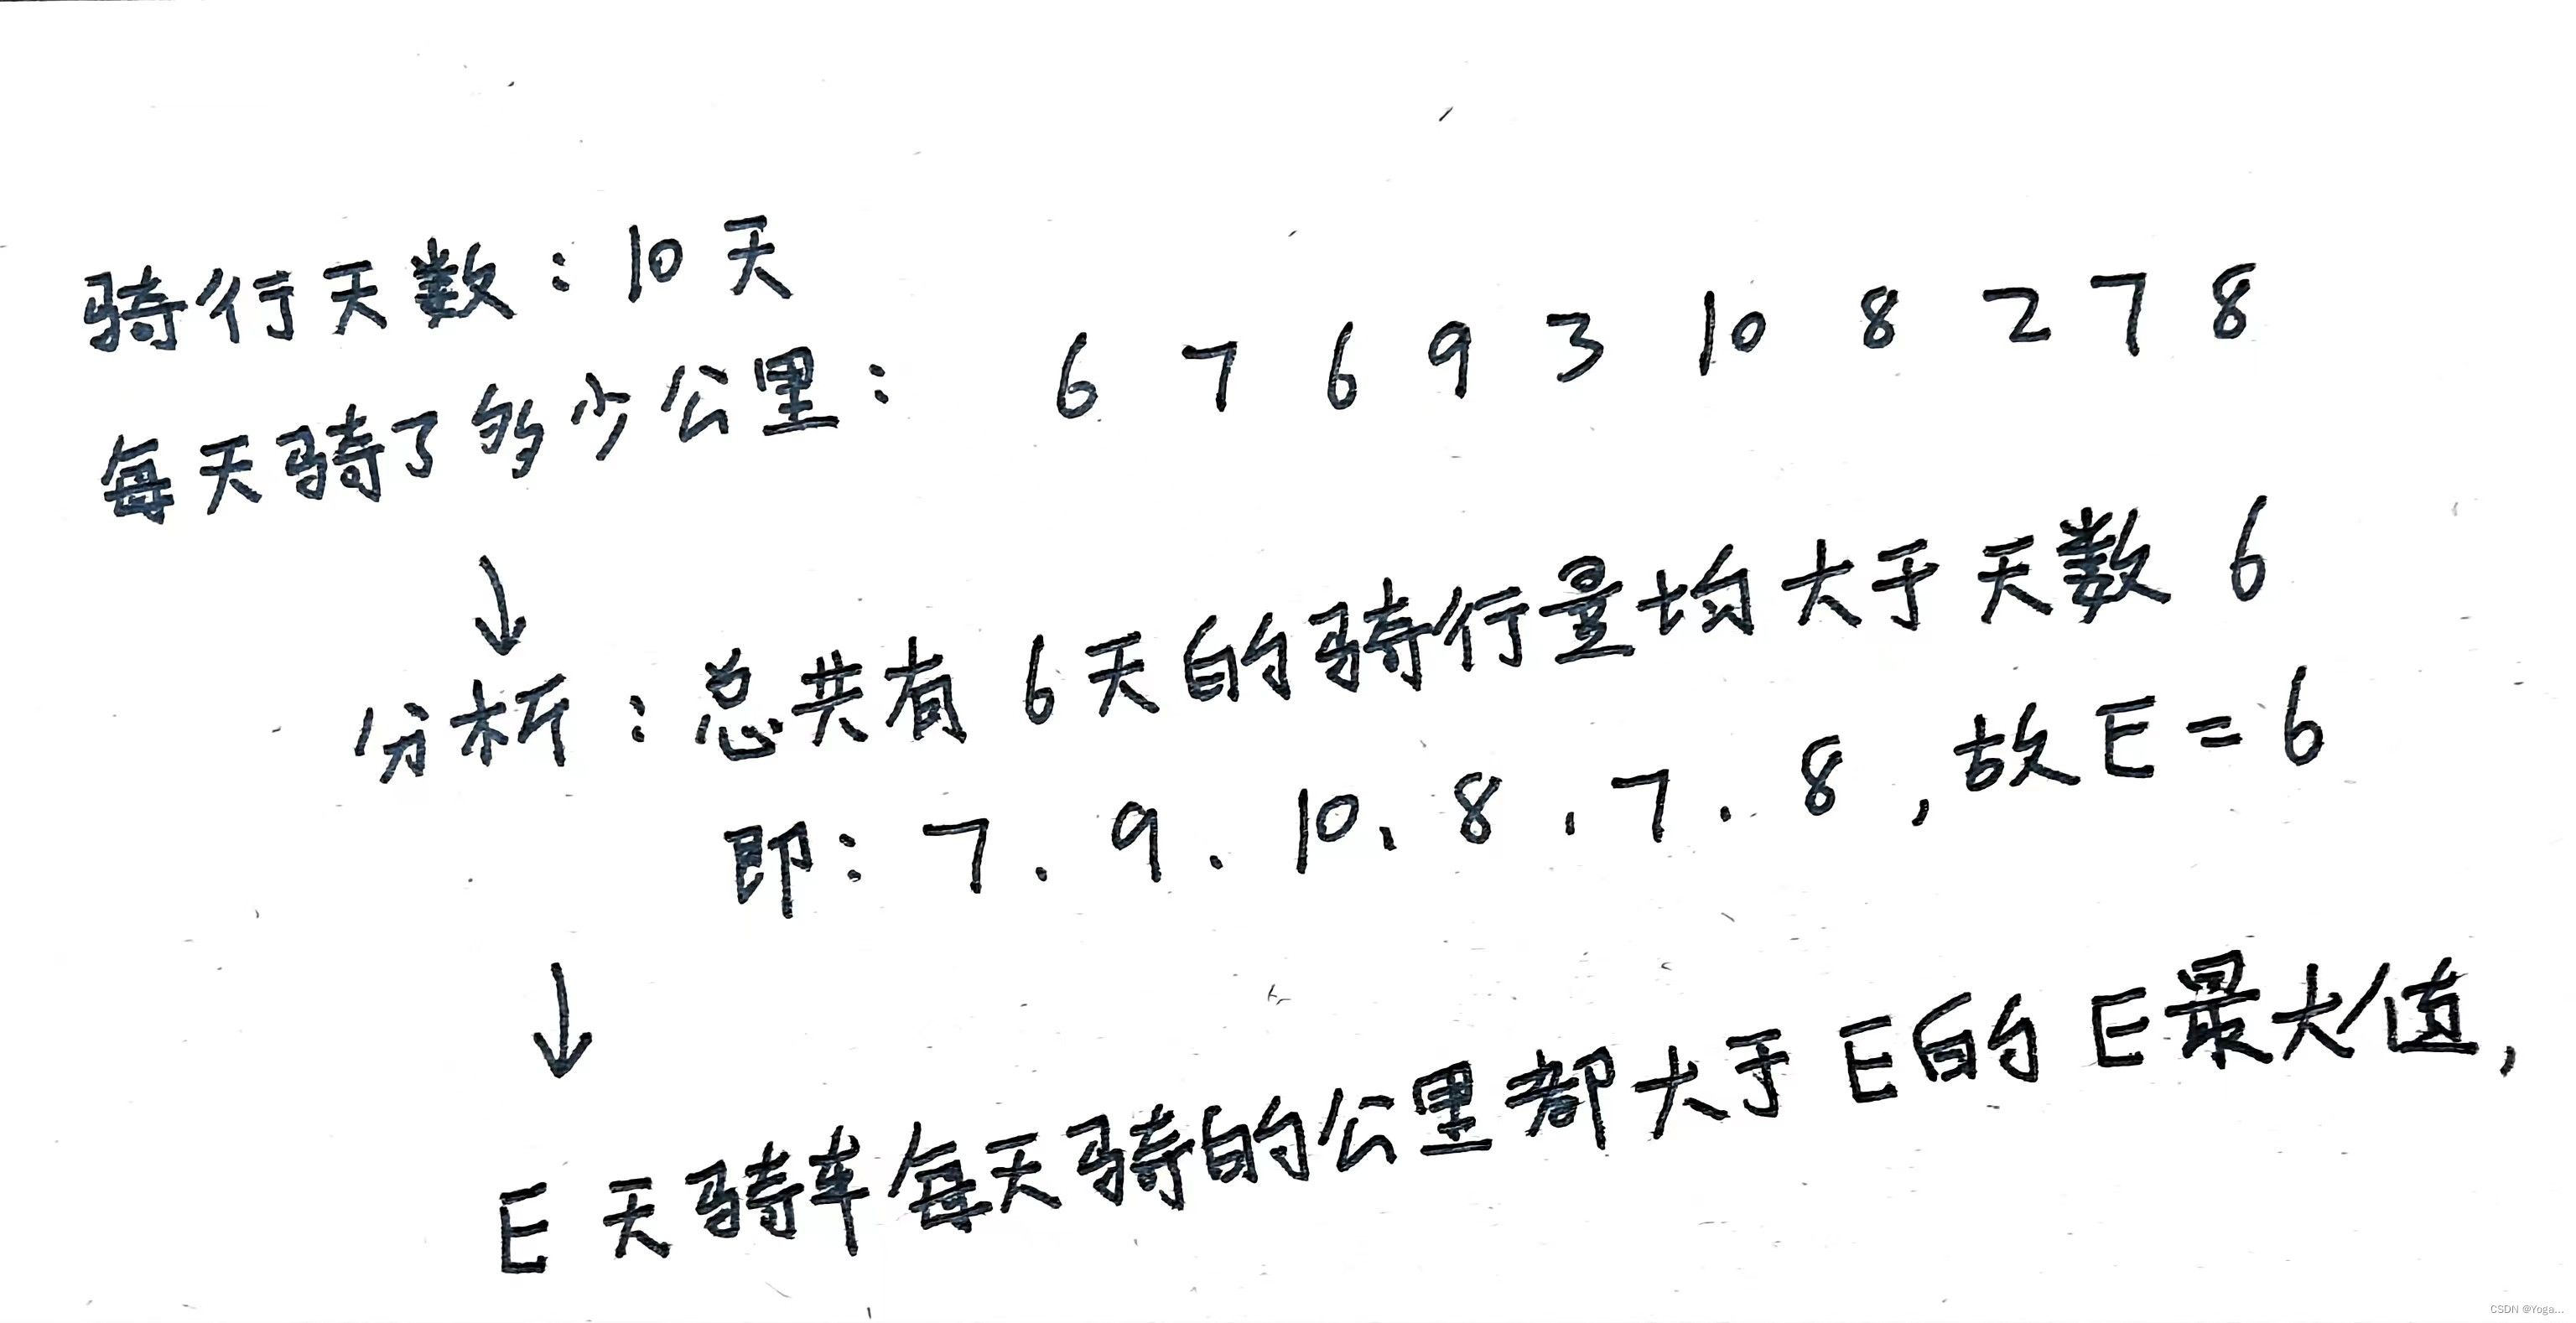 骑行天数：10天
每天骑了多少公里： 6 7 6 9 3 10 8 2 7 8
↓
分析：总共有6天的骑行量均大于天数6
即：7、9、10、8、7、8，故E=6
↓
E天骑车每天骑的公里都大于E的E最大值，
CSDN @Yoga...